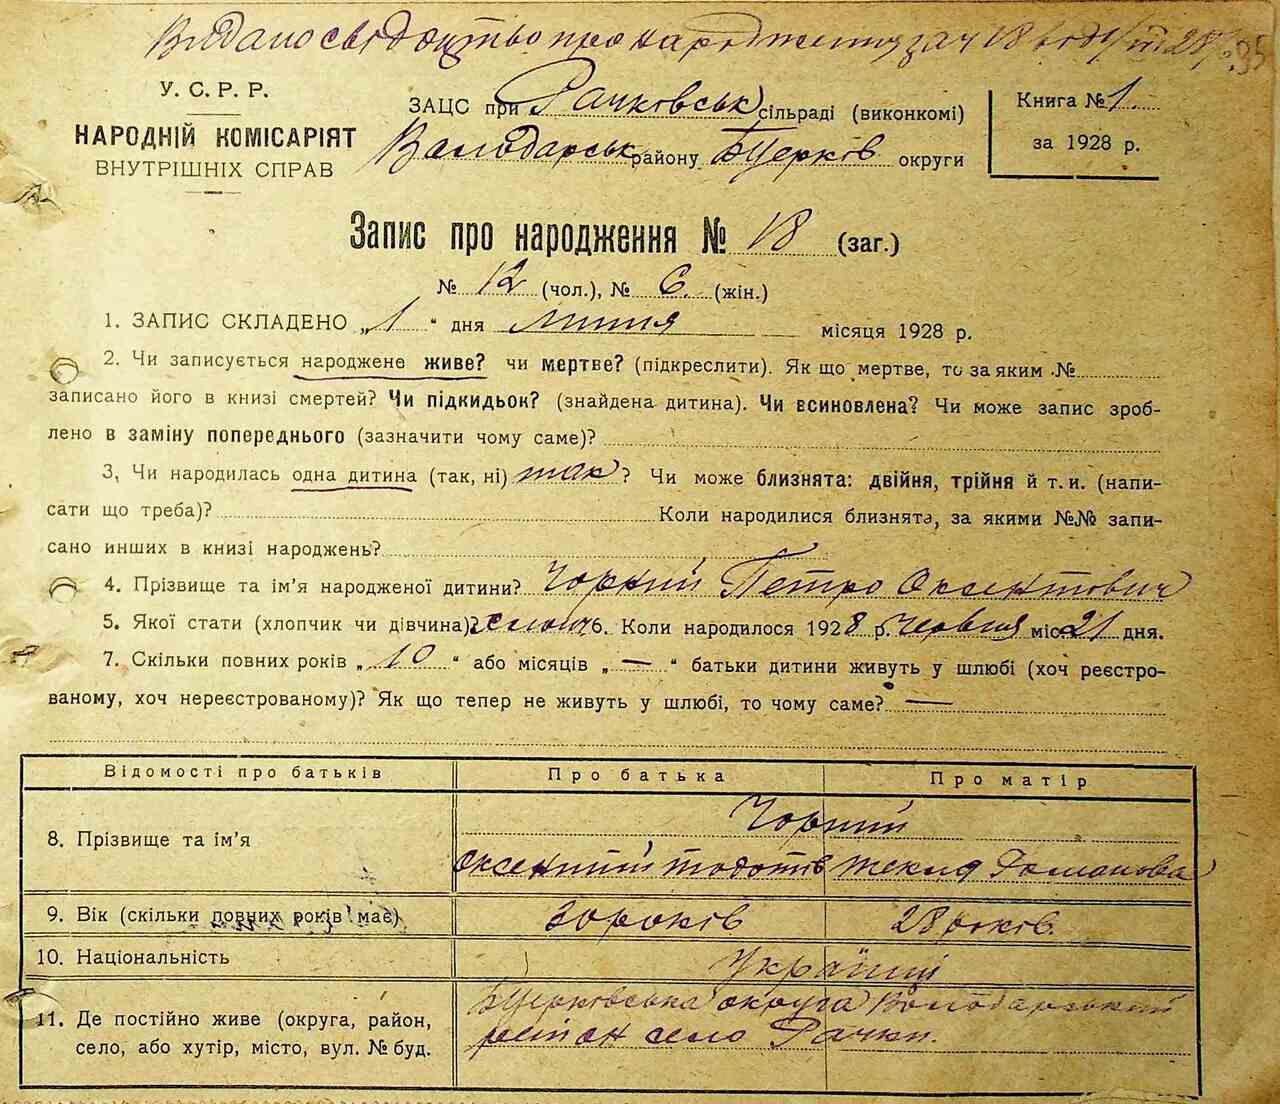 Видано свідоцтво про народження за ч 18 28 р. 35
У. С. Р. Р.
НАРОДНІЙ КОМІСАРІЯТ
ВНУТРІШНІХ СПРАВ
ЗАЦС при Рачковськ сільраді (виконкомі)
Володарськ району БЦерків округи
Книга № 1
за 1928 р.
Запис про народження № 18 (заг.)
№ 12 (чол.), № 6. (жін.)
1. ЗАПИС СКЛАДЕНО „1" дня липня місяця 1928 р.
2. Чи записується народжене живе? чи мертве? (підкреслити). Як що мертве, то за яким №
записано його в книзі смертей? Чи підкидьок? (знайдена дитина). Чи всиновлена? Чи може запис зроб-
лено в заміну попереднього (зазначити чому саме)?
3, Чи народилась одна дитина (так, ні) так? Чи може близнята: двійня, трійня й т. и. (напи-
сати що треба)? Коли народилися близнята, за якими №№ запи-
сано инших в книзі народжень?
4. Прізвище та ім'я народженої дитини? Чорний Петро Оксентович
5. Якої стати (хлопчик чи дівчина)? хлопч 6. Коли народилося 1928 р. Червня міс. 21 дня.
7. Скільки повних років „10" або місяців „—" батьки дитини живуть у шлюбі (хоч реєстро-
ваному, хоч нереєстрованому)? Як що тепер не живуть у шлюбі, то чому саме? —
Відомості про батьків Про батька Про матір
8. Прізвище та ім'я Чорний
Оксентий Тодотів Текля Романова
9. Вік (скільки повних років має) 30 років 28 років.
10. Національність Україній
11. Де постійно живе (округа, район, БЦерковська округа Володарський
село, або хутір, місто, вул. № буд. район село Рачки.